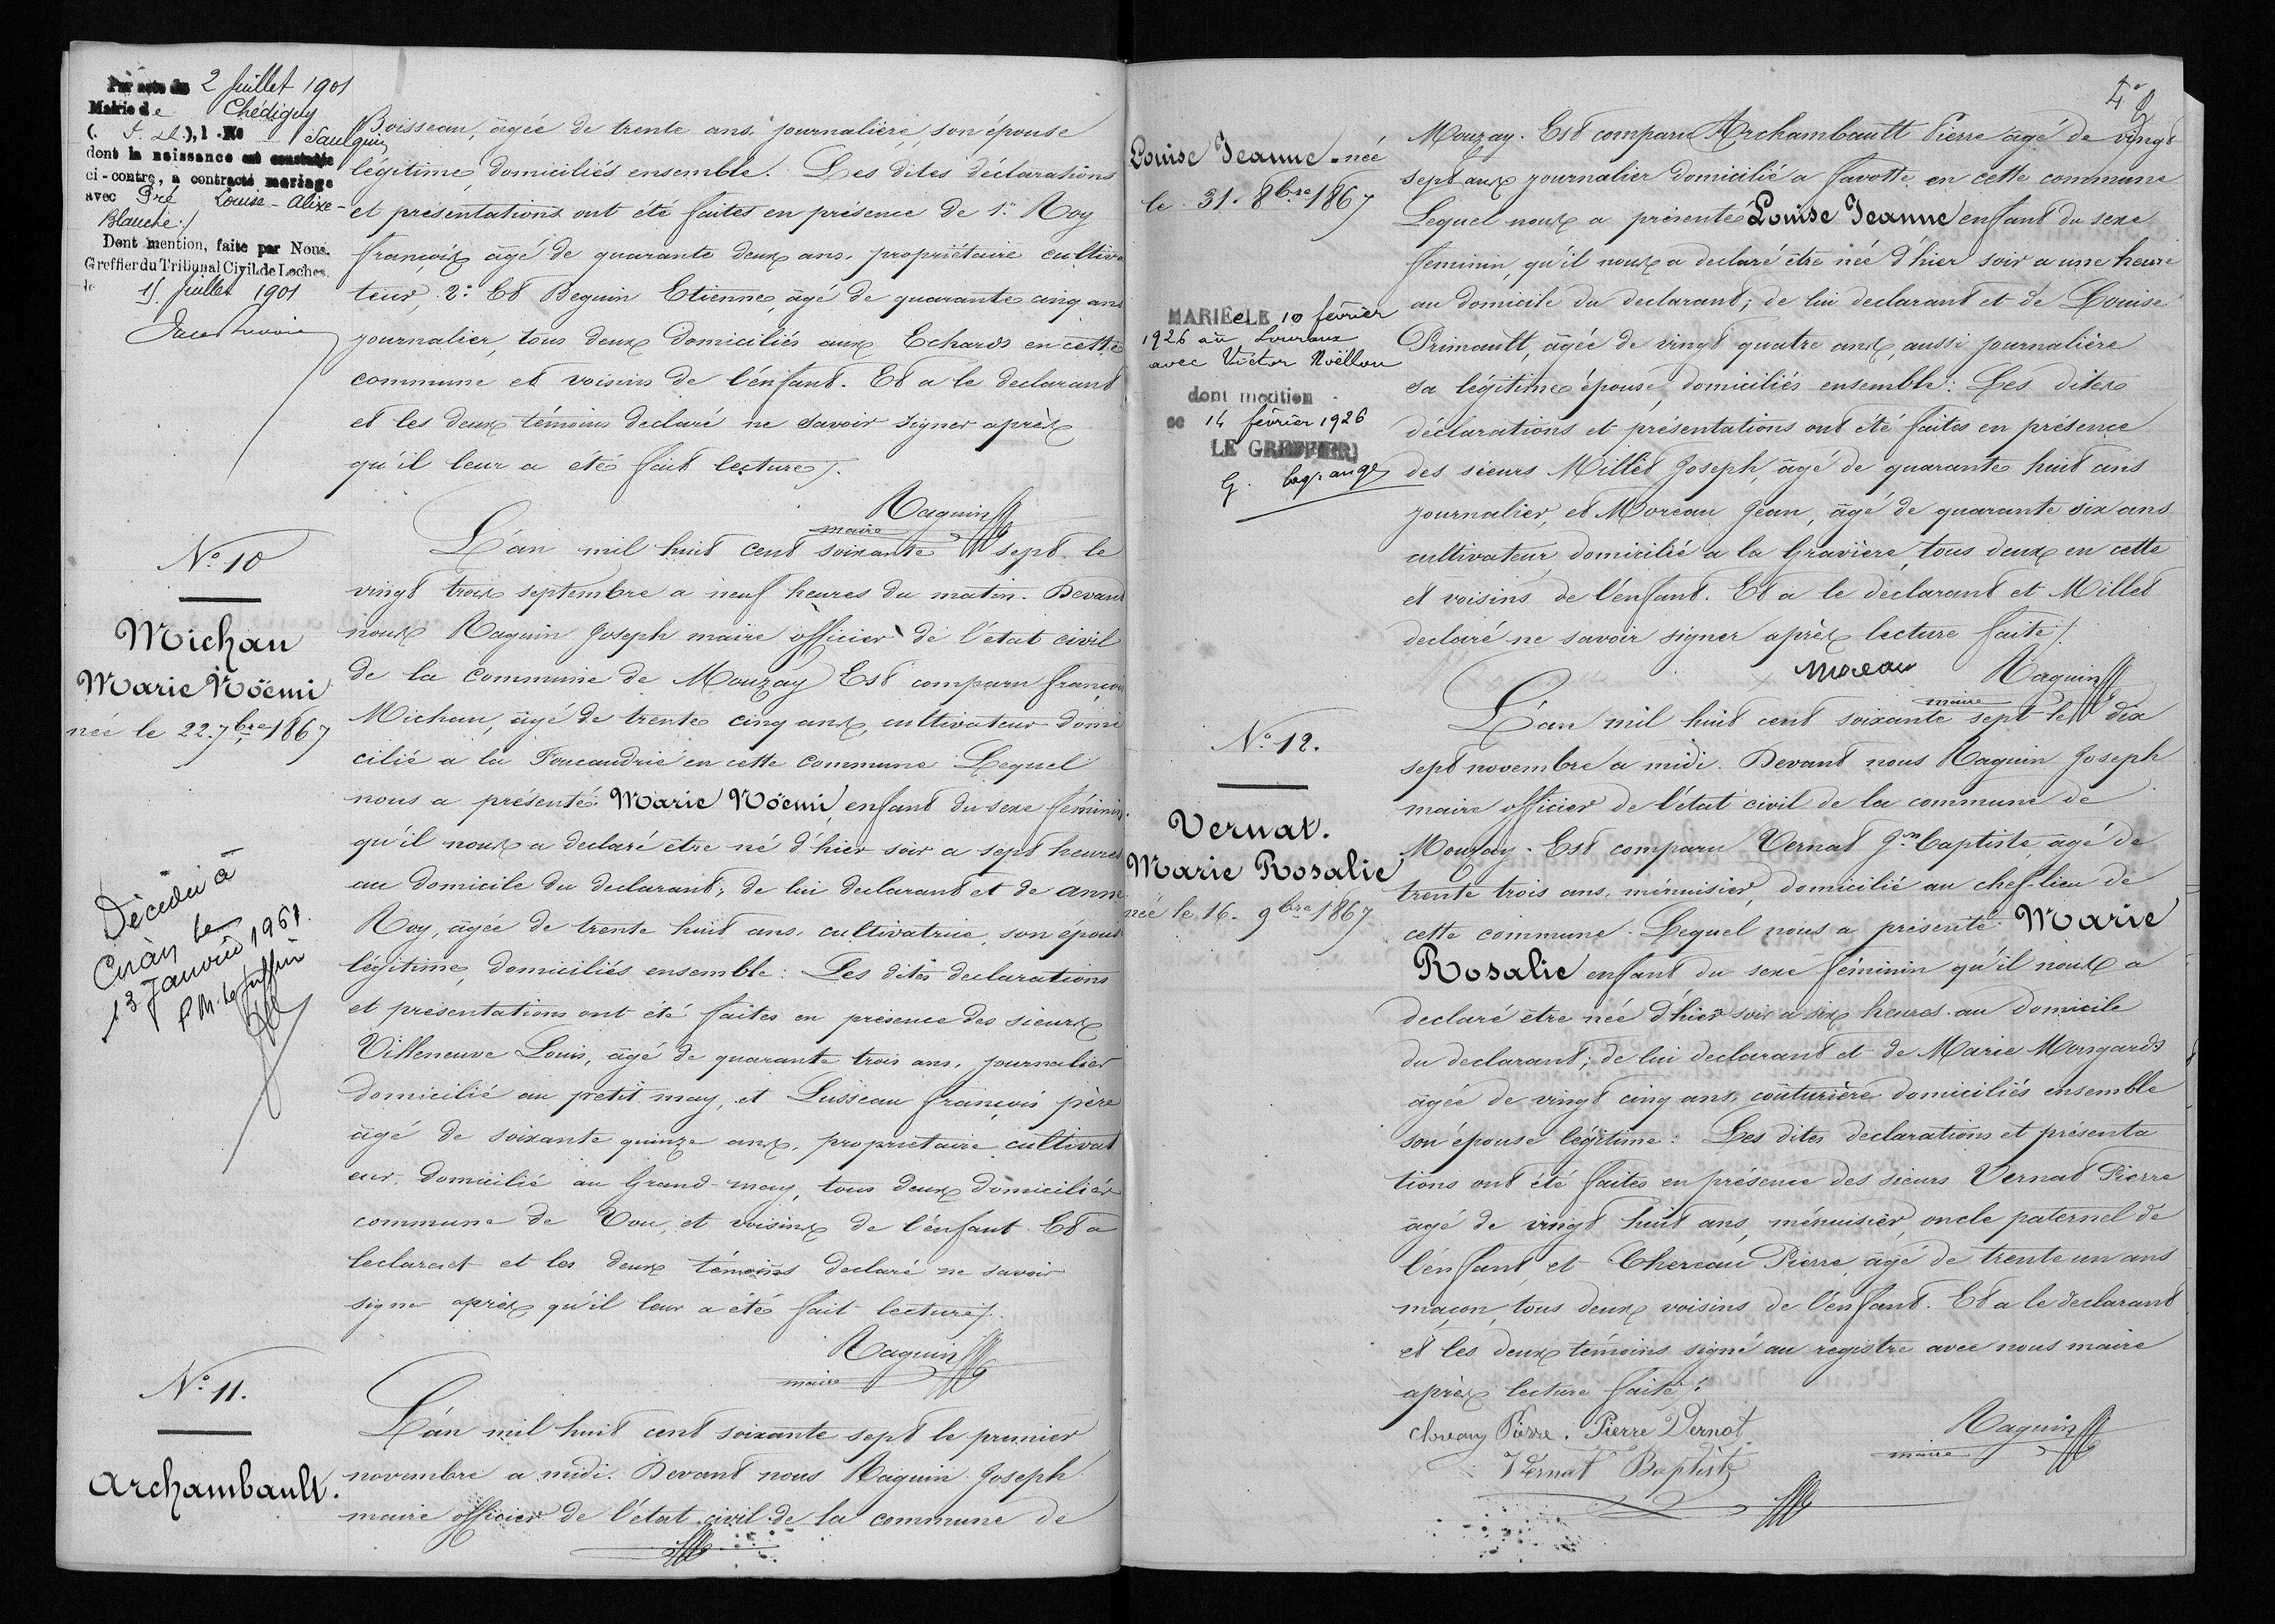 Par acte du 2 Juillet 1901
Mairie de Chédigny
(I. et L.), l. No Saulquin
dont la naissance est constatée
ci-contre, a contracté mariage
avec Pré Louise-Alixe-
Blanche./
Dont mention, faite par Nous,
Greffier du Tribunal Civil de Loches,
le 15 Juillet 1901
Boisseau, âgée de trente ans, journalière, son épouse
légitime, domiciliés ensemble. Les dites déclarations
et présentations ont été faites en présence de 1.° Roy
françois âgé de quarante deux ans, propriétaire cultiva
teur, 2.° Et Beguin Etienne, âgé de quarante cinq ans
journalier, tous deux domiciliés aux Echards en cette
commune et voisins de l'énfant. Et a le declarant
et les deux témoins declaré ne savoir signer après
qu'il leur a été fait lecture./.
Raguin
maire
N.° 10
Michau
Marie Nöemi
née le 22. 7bre 1867
Décédée à
13 Janvier 1951.
L'an mil huit cent soixante sept le
vingt trois septembre a neuf heures du matin. Devant
nous Raguin Joseph maire officier de l'état civil
de la commune de Mouzay Est comparu françois
Michau, âgé de trente cinq ans, cultivateur domi
cilié a la Foucaudrie en cette commune Lequel
nous a présenté. Marie Nöemi, enfant du sexe féminin.
qu'il nous a declaré être né d'hier soir a sept heures
au domicile du declarant; de lui declarant et de anne
Roy, âgée de trente huit ans, cultivatrice, son épouse
légitime, domiciliés ensemble: Les dites declarations
et présentations ont été faites en présence des sieurs
Villeneuve Louis, âgé de quarante trois ans, journalier
domicilié au petit may, et Lusseau françois père
âgé de soixante quinze ans, propriétaire cultivat
eur, domicilié au Grand-may, tous deux domiciliés
commune de Vou, et voisins de l'énfant. Et a
leclarent et les deux témoins declaré ne savoir
signer après qu'il leur a été fait lecture./.
Raguin
maire
N.° 11.
Archambault.
L'an mil huit cent soixante sept le premier
novembre a midi. Devant nous Raguin Joseph
maire officier de l'état civil de la commune de
4e
Louise Jeanne née
le 31. 8bre 1867
MARIEe LE 10 février
1926 au Louroux
avec Victor Noëllon
dont mention
ce 14 février 1926
LE GREFFIER
G. Lagrange
Mouzay. Est comparu Archambault Pierre âgé de vingt
sept ans journalier domicilié a favotte en cette commune
Lequel nous a présenté Louise Jeanne enfant du sexe
féminin, qu'il nous a declaré être née d'hier soir a une heure
au domicile du declarant; de lui declarant et de Louise
Primault, âgée de vingt quatre ans, aussi journalière
sa légitime épouse, domiciliés ensemble: Les dites
déclarations et présentations ont été faites en présence
des sieurs Millet Joseph, âgé de quarante huit ans
journalier, et Moreau Jean, âgé de quarante six ans
cultivateur, domicilié a la Gravière, tous deux en cette
et voisins de l'énfant. Et a le déclarant et Millet
declaré ne savoir signer après lecture faite./.
Moreau Raguin
maire
N.° 12.
Vernat.
Marie Rosalie
née le 16. 9bre 1867
L'an mil huit cent soixante sept le dix
sept novembre a midi. Devant nous Raguin Joseph
maire officier de l'état civil de la commune de
Mouzay. Est comparu Vernat Jn Baptiste, âgé de
trente trois ans, ménuisier, domicilié au chef-lieu de
cette commune. Lequel nous a présenté. Marie
Rosalie enfant du sexe féminin qu'il nous a
declaré être née d'hier soir a six heures au domicile
du declarant; de lui declarant et de Marie Mangards
âgée de vingt cinq ans, couturière domiciliés ensemble
son épouse légitime: Les dites declarations et présenta
tions ont été faites en présence des sieurs Vernat Pierre
âgé de vingt huit ans, ménuisier, oncle paternel de
l'énfant, et Chereau Pierre, âgé de trente un ans
maçon, tous deux voisins de l'énfant. Et a le declarant
et les deux témoins signé au registre avec nous maire
après lecture faite./.
chereau Pierre. Pierre Vernat Raguin
maire
Vernat Baptiste